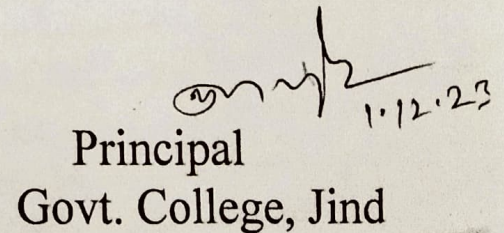 1.12.23
Principal
Govt. College, Jind